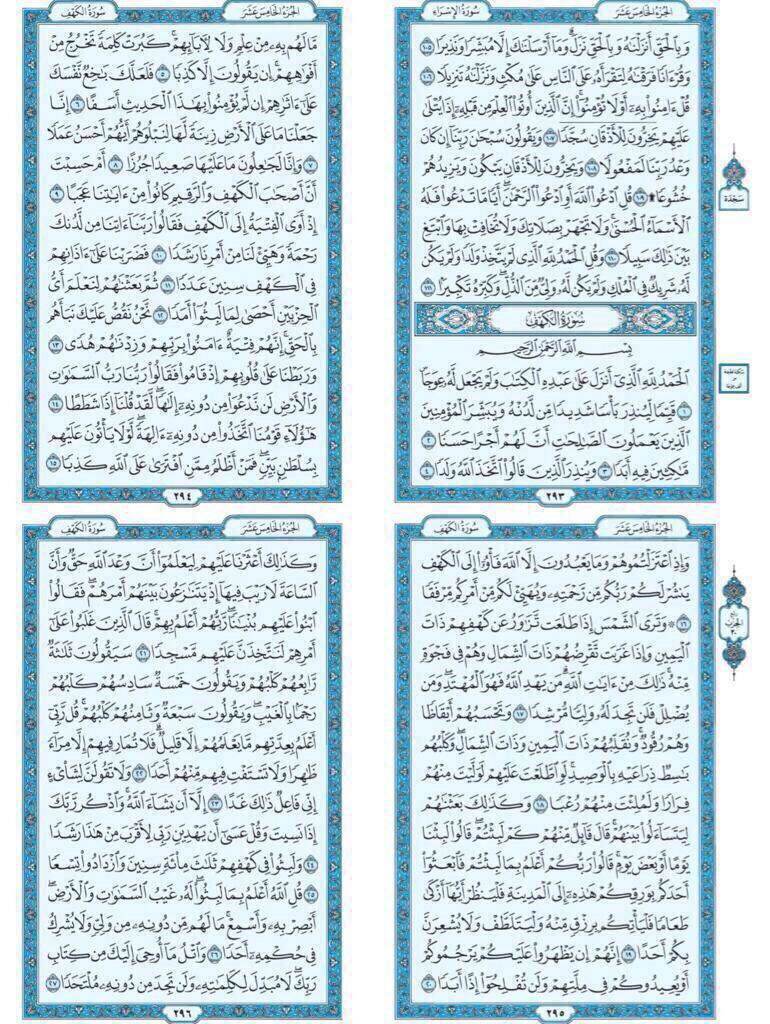 الجزء الخامس عشر
سورة الإسراء
وبالحق أنزلناه وبالحق نزل وما أرسلناك إلا مبشرا ونذيرا ١٠٥
وقرءانا فرقناه لتقرأه على الناس على مكث ونزلناه تنزيلا ١٠٦
قل ءامنوا به أو لا تؤمنوا إن الذين أوتوا العلم من قبله إذا يتلى
عليهم يخرون للأذقان سجدا ١٠٧ ويقولون سبحان ربنا إن كان
وعد ربنا لمفعولا ١٠٨ ويخرون للأذقان يبكون ويزيدهم
خشوعا ۩ ١٠٩ قل ادعوا الله أو ادعوا الرحمن أيا ما تدعوا فله
الأسماء الحسنى ولا تجهر بصلاتك ولا تخافت بها وابتغ
بين ذلك سبيلا ١١٠ وقل الحمد لله الذي لم يتخذ ولدا ولم يكن
له شريك في الملك ولم يكن له ولي من الذل وكبره تكبيرا ١١١
سورة الكهف
بسم الله الرحمن الرحيم
الحمد لله الذي أنزل على عبده الكتاب ولم يجعل له عوجا
١ قيما لينذر بأسا شديدا من لدنه ويبشر المؤمنين
الذين يعملون الصالحات أن لهم أجرا حسنا ٢
ماكثين فيه أبدا ٣ وينذر الذين قالوا اتخذ الله ولدا ٤
٢٩٣
سجدة
الجزء الخامس عشر
سورة الكهف
ما لهم به من علم ولا لآبائهم كبرت كلمة تخرج من
أفواههم إن يقولون إلا كذبا ٥ فلعلك باخع نفسك
على ءاثارهم إن لم يؤمنوا بهذا الحديث أسفا ٦ إنا
جعلنا ما على الأرض زينة لها لنبلوهم أيهم أحسن عملا
٧ وإنا لجاعلون ما عليها صعيدا جرزا ٨ أم حسبت
أن أصحاب الكهف والرقيم كانوا من ءاياتنا عجبا ٩
إذ أوى الفتية إلى الكهف فقالوا ربنا ءاتنا من لدنك
رحمة وهيئ لنا من أمرنا رشدا ١٠ فضربنا على ءاذانهم
في الكهف سنين عددا ١١ ثم بعثناهم لنعلم أي
الحزبين أحصى لما لبثوا أمدا ١٢ نحن نقص عليك نبأهم
بالحق إنهم فتية ءامنوا بربهم وزدناهم هدى ١٣
وربطنا على قلوبهم إذ قاموا فقالوا ربنا رب السماوات
والأرض لن ندعوا من دونه إلها لقد قلنا إذا شططا ١٤
هؤلاء قومنا اتخذوا من دونه ءالهة لولا يأتون عليهم
بسلطان بين فمن أظلم ممن افترى على الله كذبا ١٥
٢٩٤
الجزء الخامس عشر
سورة الكهف
وإذ اعتزلتموهم وما يعبدون إلا الله فأووا إلى الكهف
ينشر لكم ربكم من رحمته ويهيئ لكم من أمركم مرفقا
١٦ ۞ وترى الشمس إذا طلعت تزاور عن كهفهم ذات
اليمين وإذا غربت تقرضهم ذات الشمال وهم في فجوة
منه ذلك من ءايات الله من يهد الله فهو المهتد ومن
يضلل فلن تجد له وليا مرشدا ١٧ وتحسبهم أيقاظا
وهم رقود ونقلبهم ذات اليمين وذات الشمال وكلبهم
باسط ذراعيه بالوصيد لو اطلعت عليهم لوليت منهم
فرارا ولملئت منهم رعبا ١٨ وكذلك بعثناهم
ليتساءلوا بينهم قال قائل منهم كم لبثتم قالوا لبثنا
يوما أو بعض يوم قالوا ربكم أعلم بما لبثتم فابعثوا
أحدكم بورقكم هذه إلى المدينة فلينظر أيها أزكى
طعاما فليأتكم برزق منه وليتلطف ولا يشعرن
بكم أحدا ١٩ إنهم إن يظهروا عليكم يرجموكم
أو يعيدوكم في ملتهم ولن تفلحوا إذا أبدا ٢٠
٢٩٥
الجزء الخامس عشر
سورة الكهف
وكذلك أعثرنا عليهم ليعلموا أن وعد الله حق وأن
الساعة لا ريب فيها إذ يتنازعون بينهم أمرهم فقالوا
ابنوا عليهم بنيانا ربهم أعلم بهم قال الذين غلبوا على
أمرهم لنتخذن عليهم مسجدا ٢١ سيقولون ثلاثة
رابعهم كلبهم ويقولون خمسة سادسهم كلبهم
رجما بالغيب ويقولون سبعة وثامنهم كلبهم قل ربي
أعلم بعدتهم ما يعلمهم إلا قليل فلا تمار فيهم إلا مراء
ظاهرا ولا تستفت فيهم منهم أحدا ٢٢ ولا تقولن لشايء
إني فاعل ذلك غدا ٢٣ إلا أن يشاء الله واذكر ربك
إذا نسيت وقل عسى أن يهدين ربي لأقرب من هذا رشدا
٢٤ ولبثوا في كهفهم ثلاث مائة سنين وازدادوا تسعا
٢٥ قل الله أعلم بما لبثوا له غيب السماوات والأرض
أبصر به وأسمع ما لهم من دونه من ولي ولا يشرك
في حكمه أحدا ٢٦ واتل ما أوحي إليك من كتاب
ربك لا مبدل لكلماته ولن تجد من دونه ملتحدا ٢٧
٢٩٦